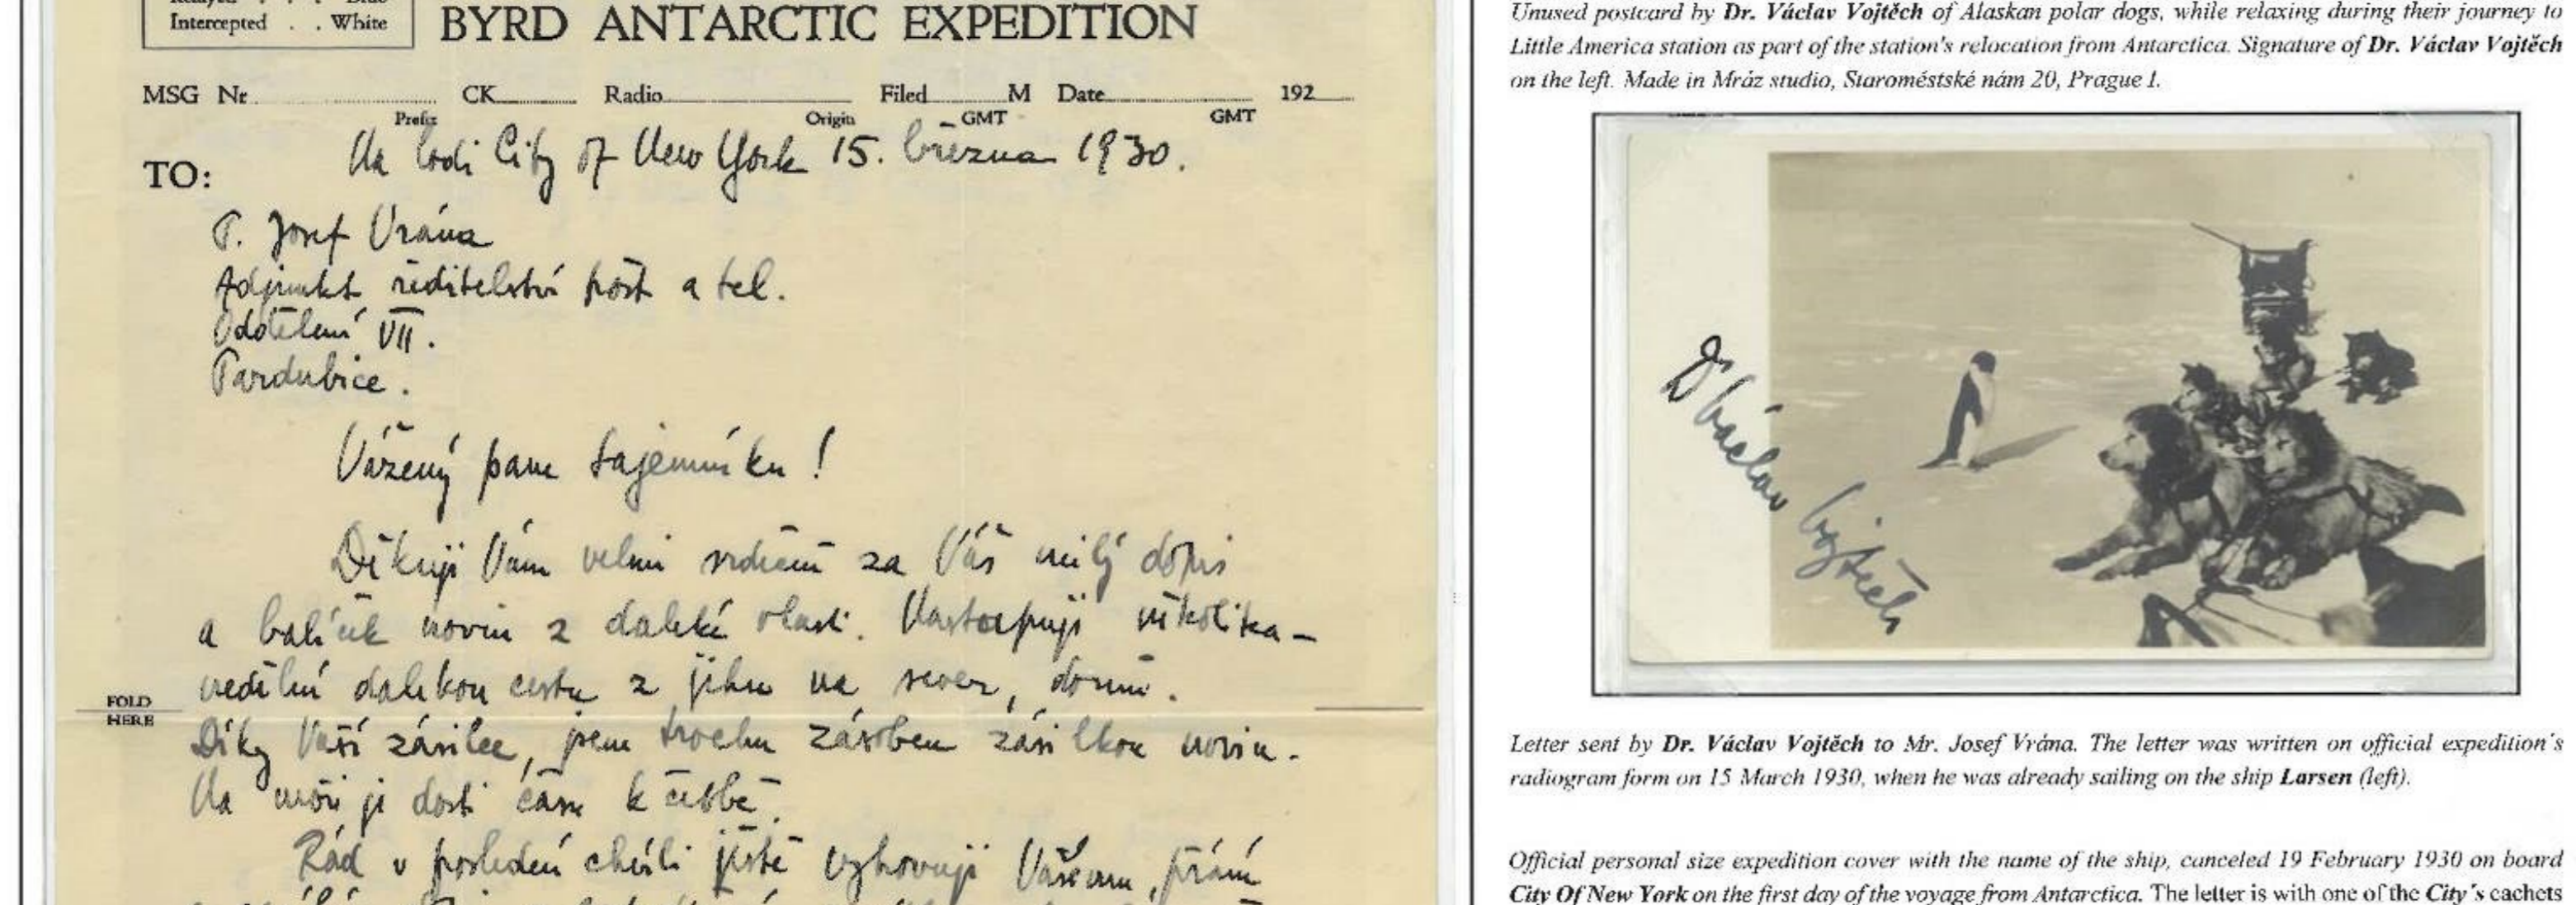 Intercepted . . White
BYRD ANTARCTIC EXPEDITION
MSG Nr. CK Radio Filed M Date 192
Prefix Origin GMT GMT
Na lodi City of New York 15. března 1930.
TO:
P. Josef Vrána
Adjunkt ředitelství pošt a tel.
Oddělení VII.
Pardubice.
Vážený pane tajemníku!
Děkuji Vám velmi srdečně za Váš milý dopis
a balíček novin z daleké vlasti. Nastoupuji několika-
nedělní dalekou cestu z jihu na sever, domů.
FOLD
HERE
Díky Vaší zásilce, jsem trochu zásoben zásilkou novin.
Na moři je dosti času k četbě.
Rád v poslední chvíli ještě vyhovuji Vašemu přání
Unused postcard by Dr. Václav Vojtěch of Alaskan polar dogs, while relaxing during their journey to
Little America station as part of the station's relocation from Antarctica. Signature of Dr. Václav Vojtěch
on the left. Made in Mráz studio, Staroměstské nám 20, Prague 1.
Dr Václav Vojtěch
Letter sent by Dr. Václav Vojtěch to Mr. Josef Vrána. The letter was written on official expedition's
radiogram form on 15 March 1930, when he was already sailing on the ship Larsen (left).
Official personal size expedition cover with the name of the ship, canceled 19 February 1930 on board
City Of New York on the first day of the voyage from Antarctica. The letter is with one of the City's cachets